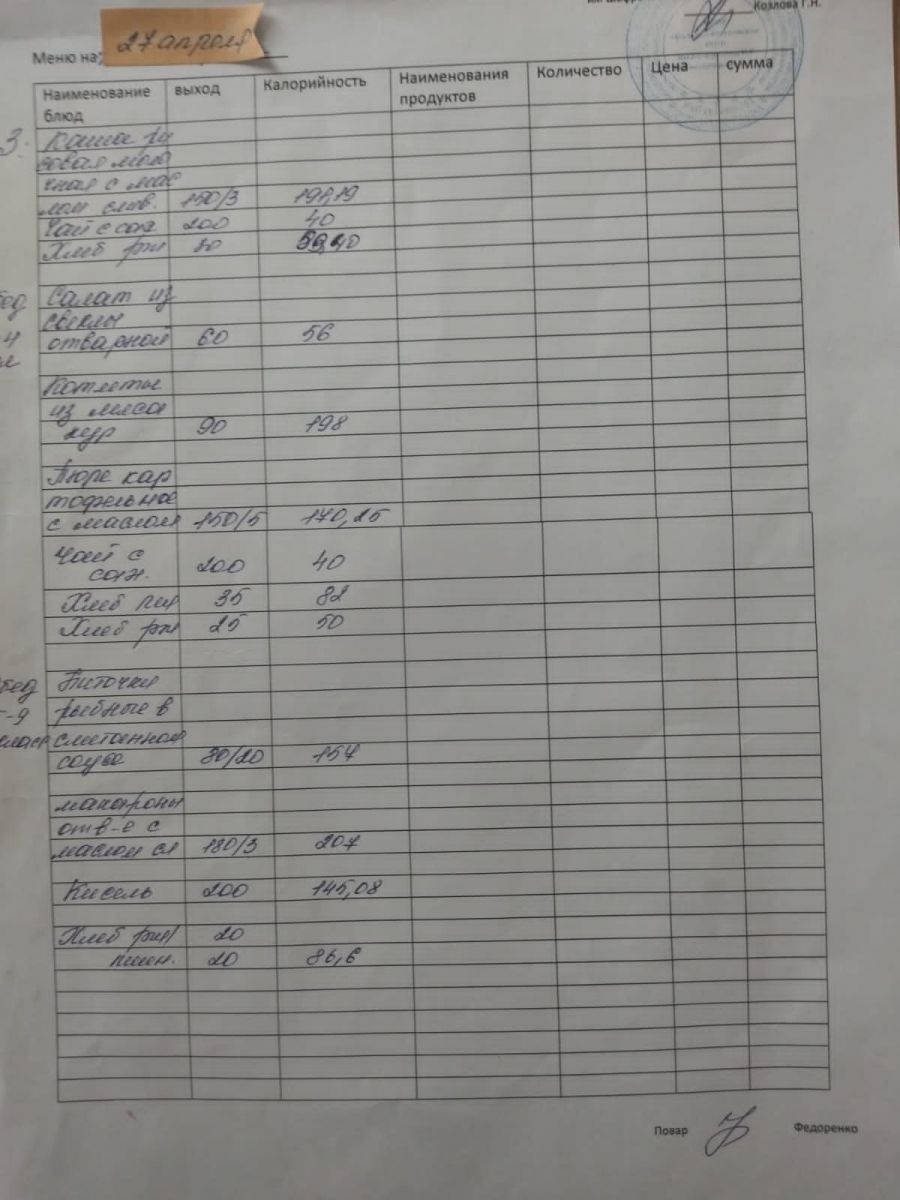 Козлова Г.Н.
Меню на
27 апреля
Наименование блюд выход Калорийность Наименования продуктов Количество Цена сумма
З. Каша ри
совая моло
чная с мас
лом слив. 150/3
Чай с сах 200 40
Хлеб рж
Салат из
свеклы
отварной 60 56
Котлеты
из мяса
кур 90 198
Пюре кар
тофельное
с маслом 150/5 170,25
Чай с
сах. 200 40
Хлеб пш 35 82
Хлеб рж 25 50
Биточки
рыбные в
сметанном
соусе 80/20 154
макароны
отв-е с
маслом сл 180/3 207
Кисель 200 145,08
Хлеб рж/ 20
пшен. 20 86,6
Повар Федоренко